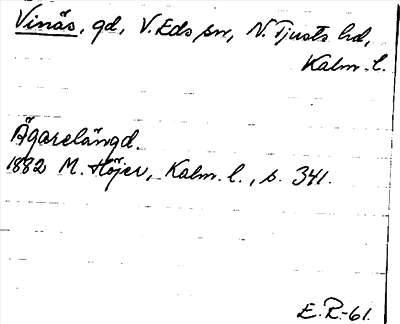 Vinäs, gd, V. Eds sn, N. Tjusts hd,
Kalm. l.
Ägarelängd.
1882 M. Höjer, Kalm. l., s. 341.
E.R.-61.